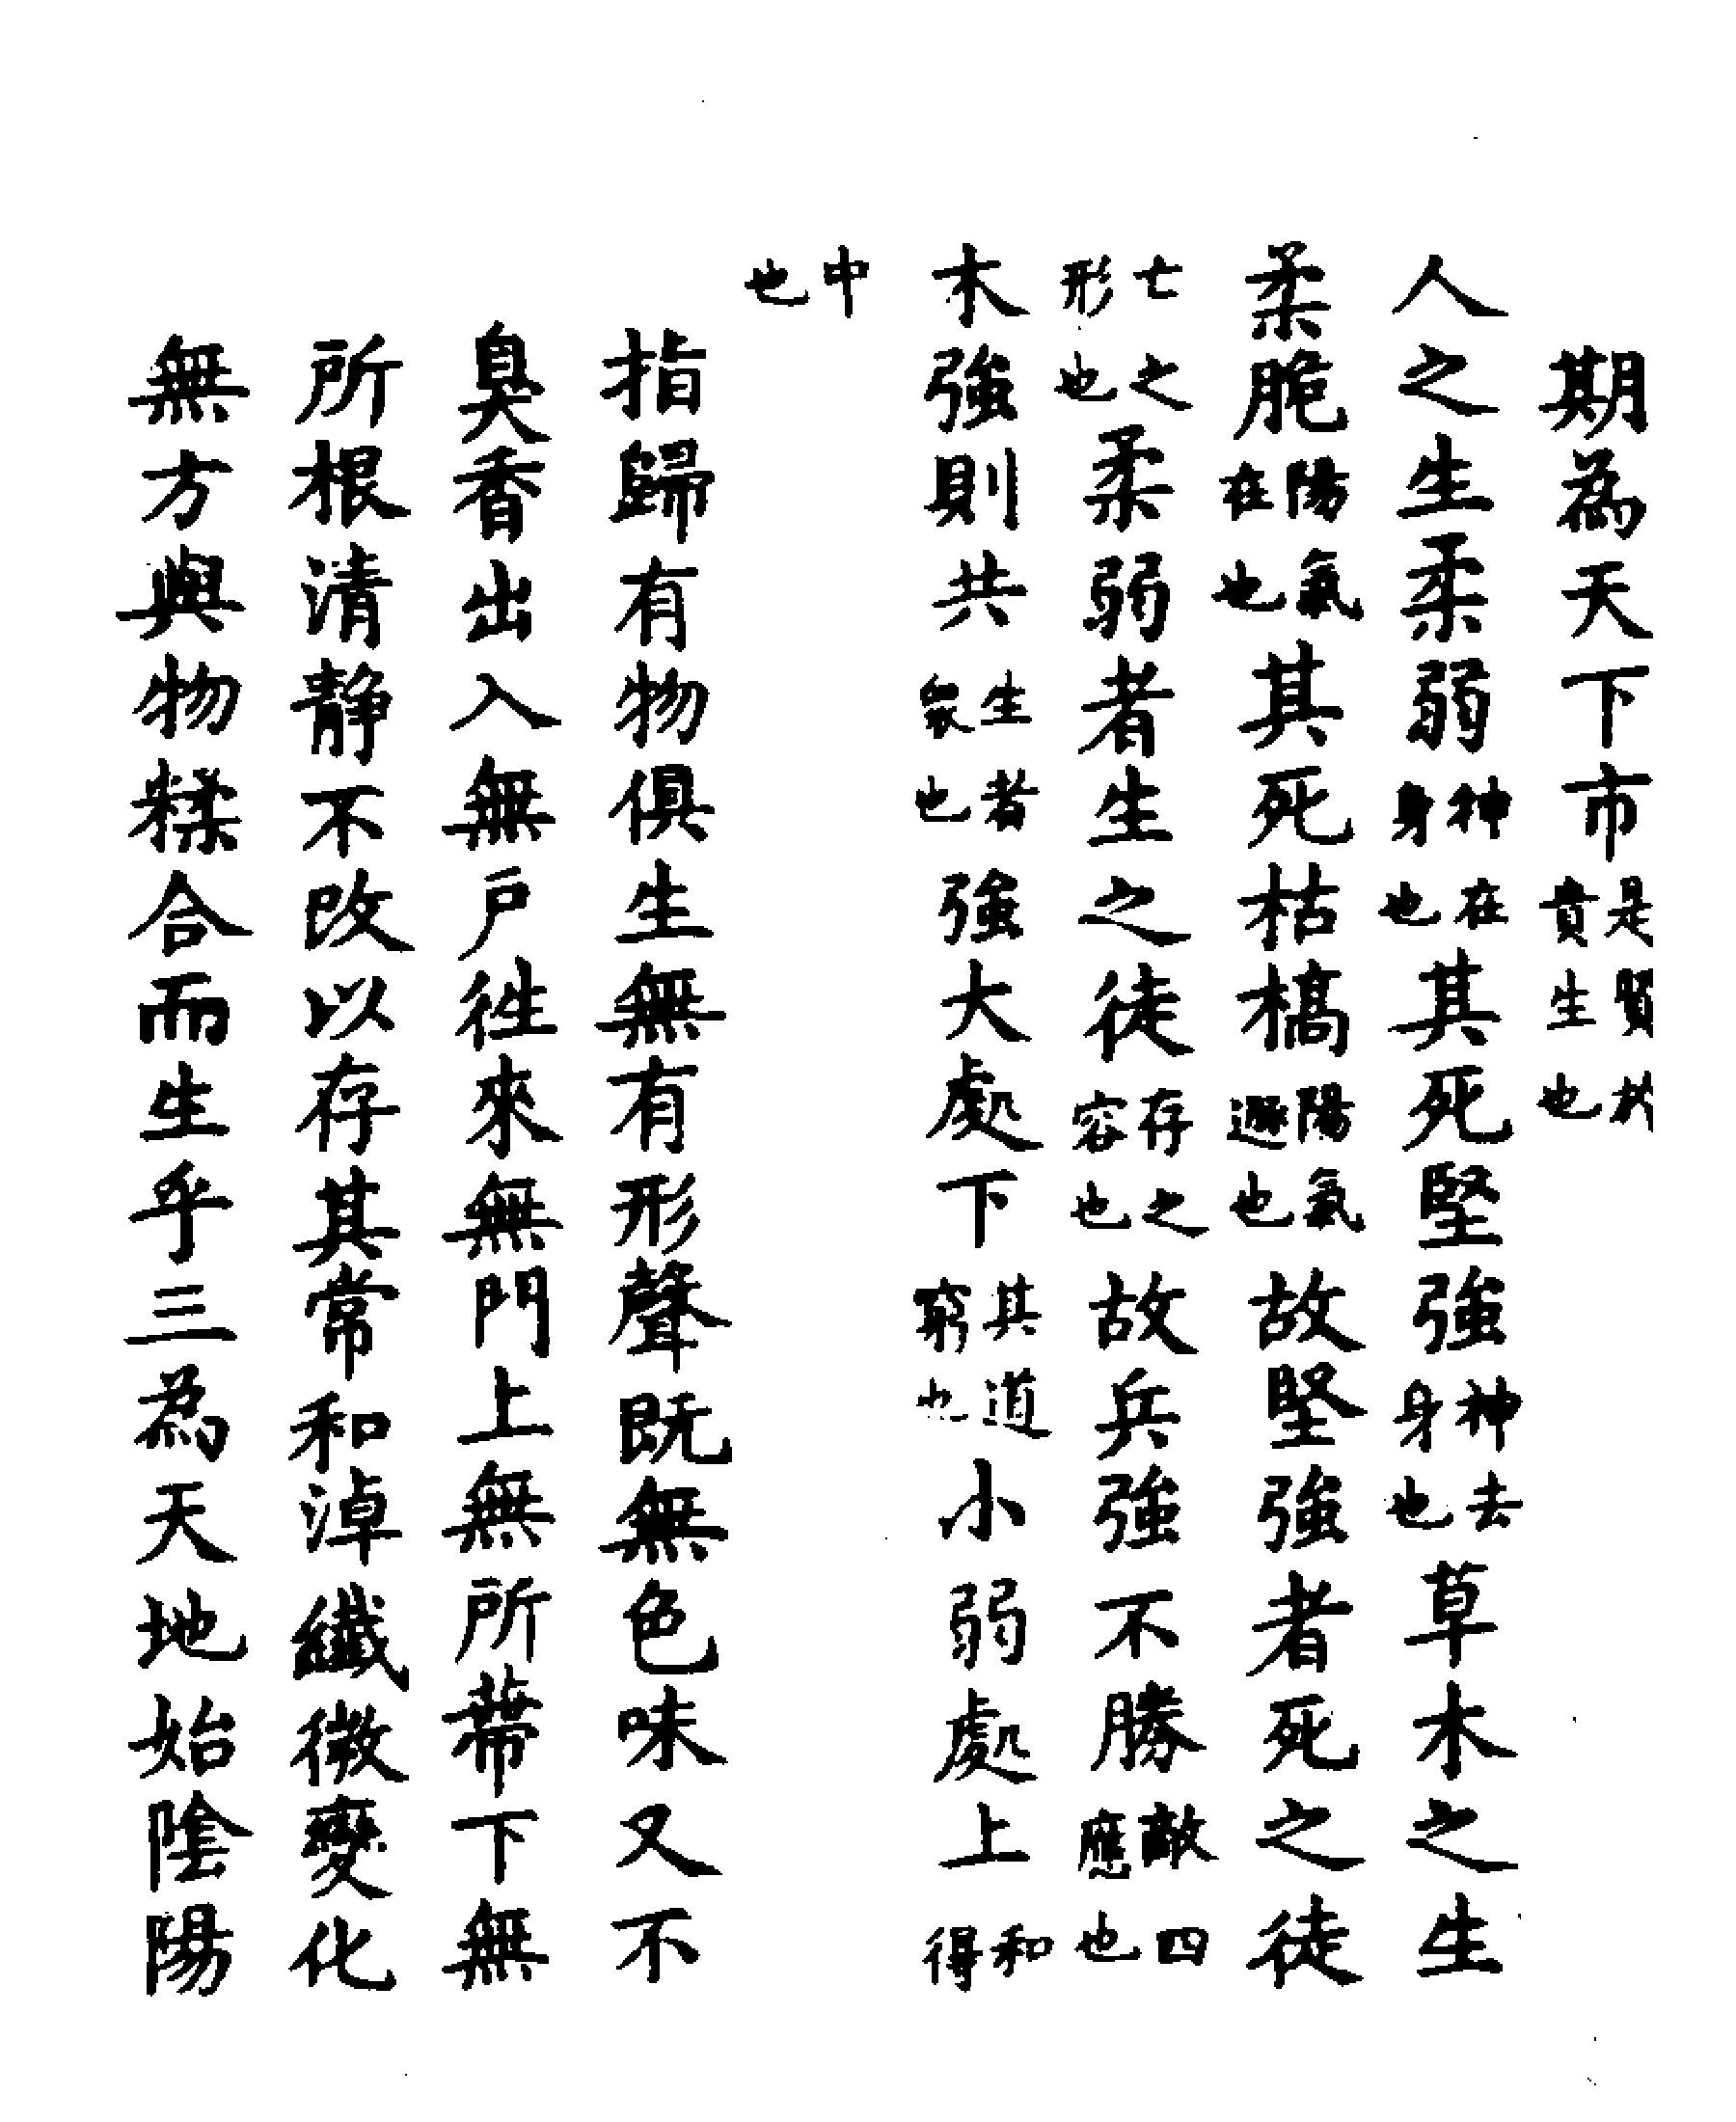 期為天下市是賢於貴生也
人之生柔弱神在身也其死堅強神去身也草木之生
柔脆陽氣在也其死枯槁陽氣遯也故堅強者死之徒
亡之形也柔弱者生之徒存之容也故兵強不勝敵四應也
木強則共生者衆也強大處下其道窮也小弱處上和得
中也
指歸有物俱生無有形聲既無色味又不
臭香出入無戶徃來無門上無所蔕下無
所根清靜不改以存其常和淖纖微變化
無方與物糅合而生乎三為天地始陰陽